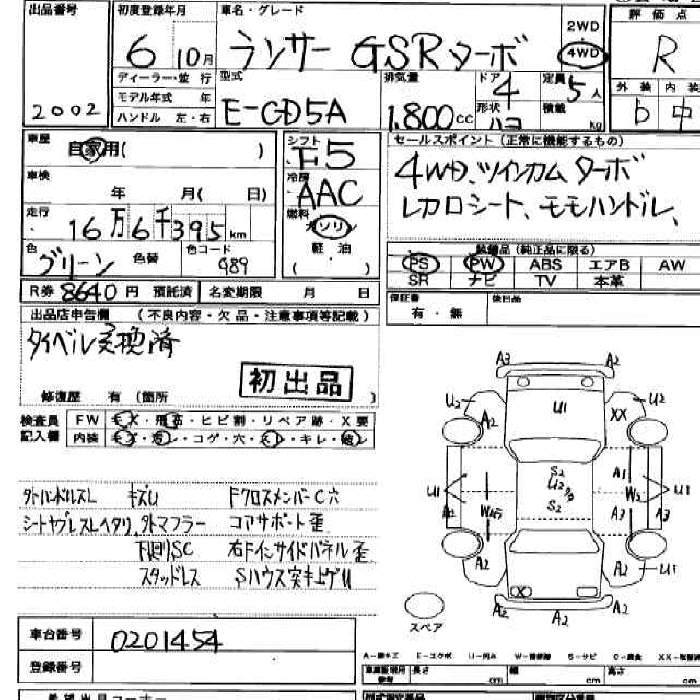 出品番号 初度登録年月 車名・グレード 2WD 評価点
2002 6 10月 ランサー GSRターボ 4WD R
ディーラー・並行 型式 排気量 ドア 定員 外装 内装
モデル年式 年 E-CD5A 1.800cc 4 5人 b 中
ハンドル 左・右 形状 ハコ 積載 kg
車歴 自家用( ) シフト F5 セールスポイント(正常に機能するもの)
車検 年 月( 日) 冷房 AAC 4WD、ツインカム ターボ
走行 16万6千395km 燃料 ガソリン レカロシート、モモハンドル、
色 グリーン 色替 色コード G89 軽油 ( ) 装備品(純正品に限る)
PS PW ABS エアB AW
SR ナビ TV 本革
R券 8640円 預託済 名変期限 月 日 保証書 有・無 後日品
出品店申告欄 (不良内容・欠品・注意事項等記載)
タイベル交換済
初出品
修復歴 有(箇所 )
検査員 FW キズ・飛石・ヒビ割・リペア跡・X要
記入欄 内装 コゲ・穴・キレ・
A3 A2
U2 A2 U1 XX U2
S2 A1
U1 U2 W2 U1
A2 S2 A3 A2
A2 X A2 U1
A2 A2
キズU Fクロスメンバー C穴
外マフラー コアサポート歪
下廻りSC 右Fインサイドパネル歪
スタッドレス Sハウス突キ上ゲU
スペア
車台番号 0201454
登録番号
長さ cm 幅 cm 高さ cm